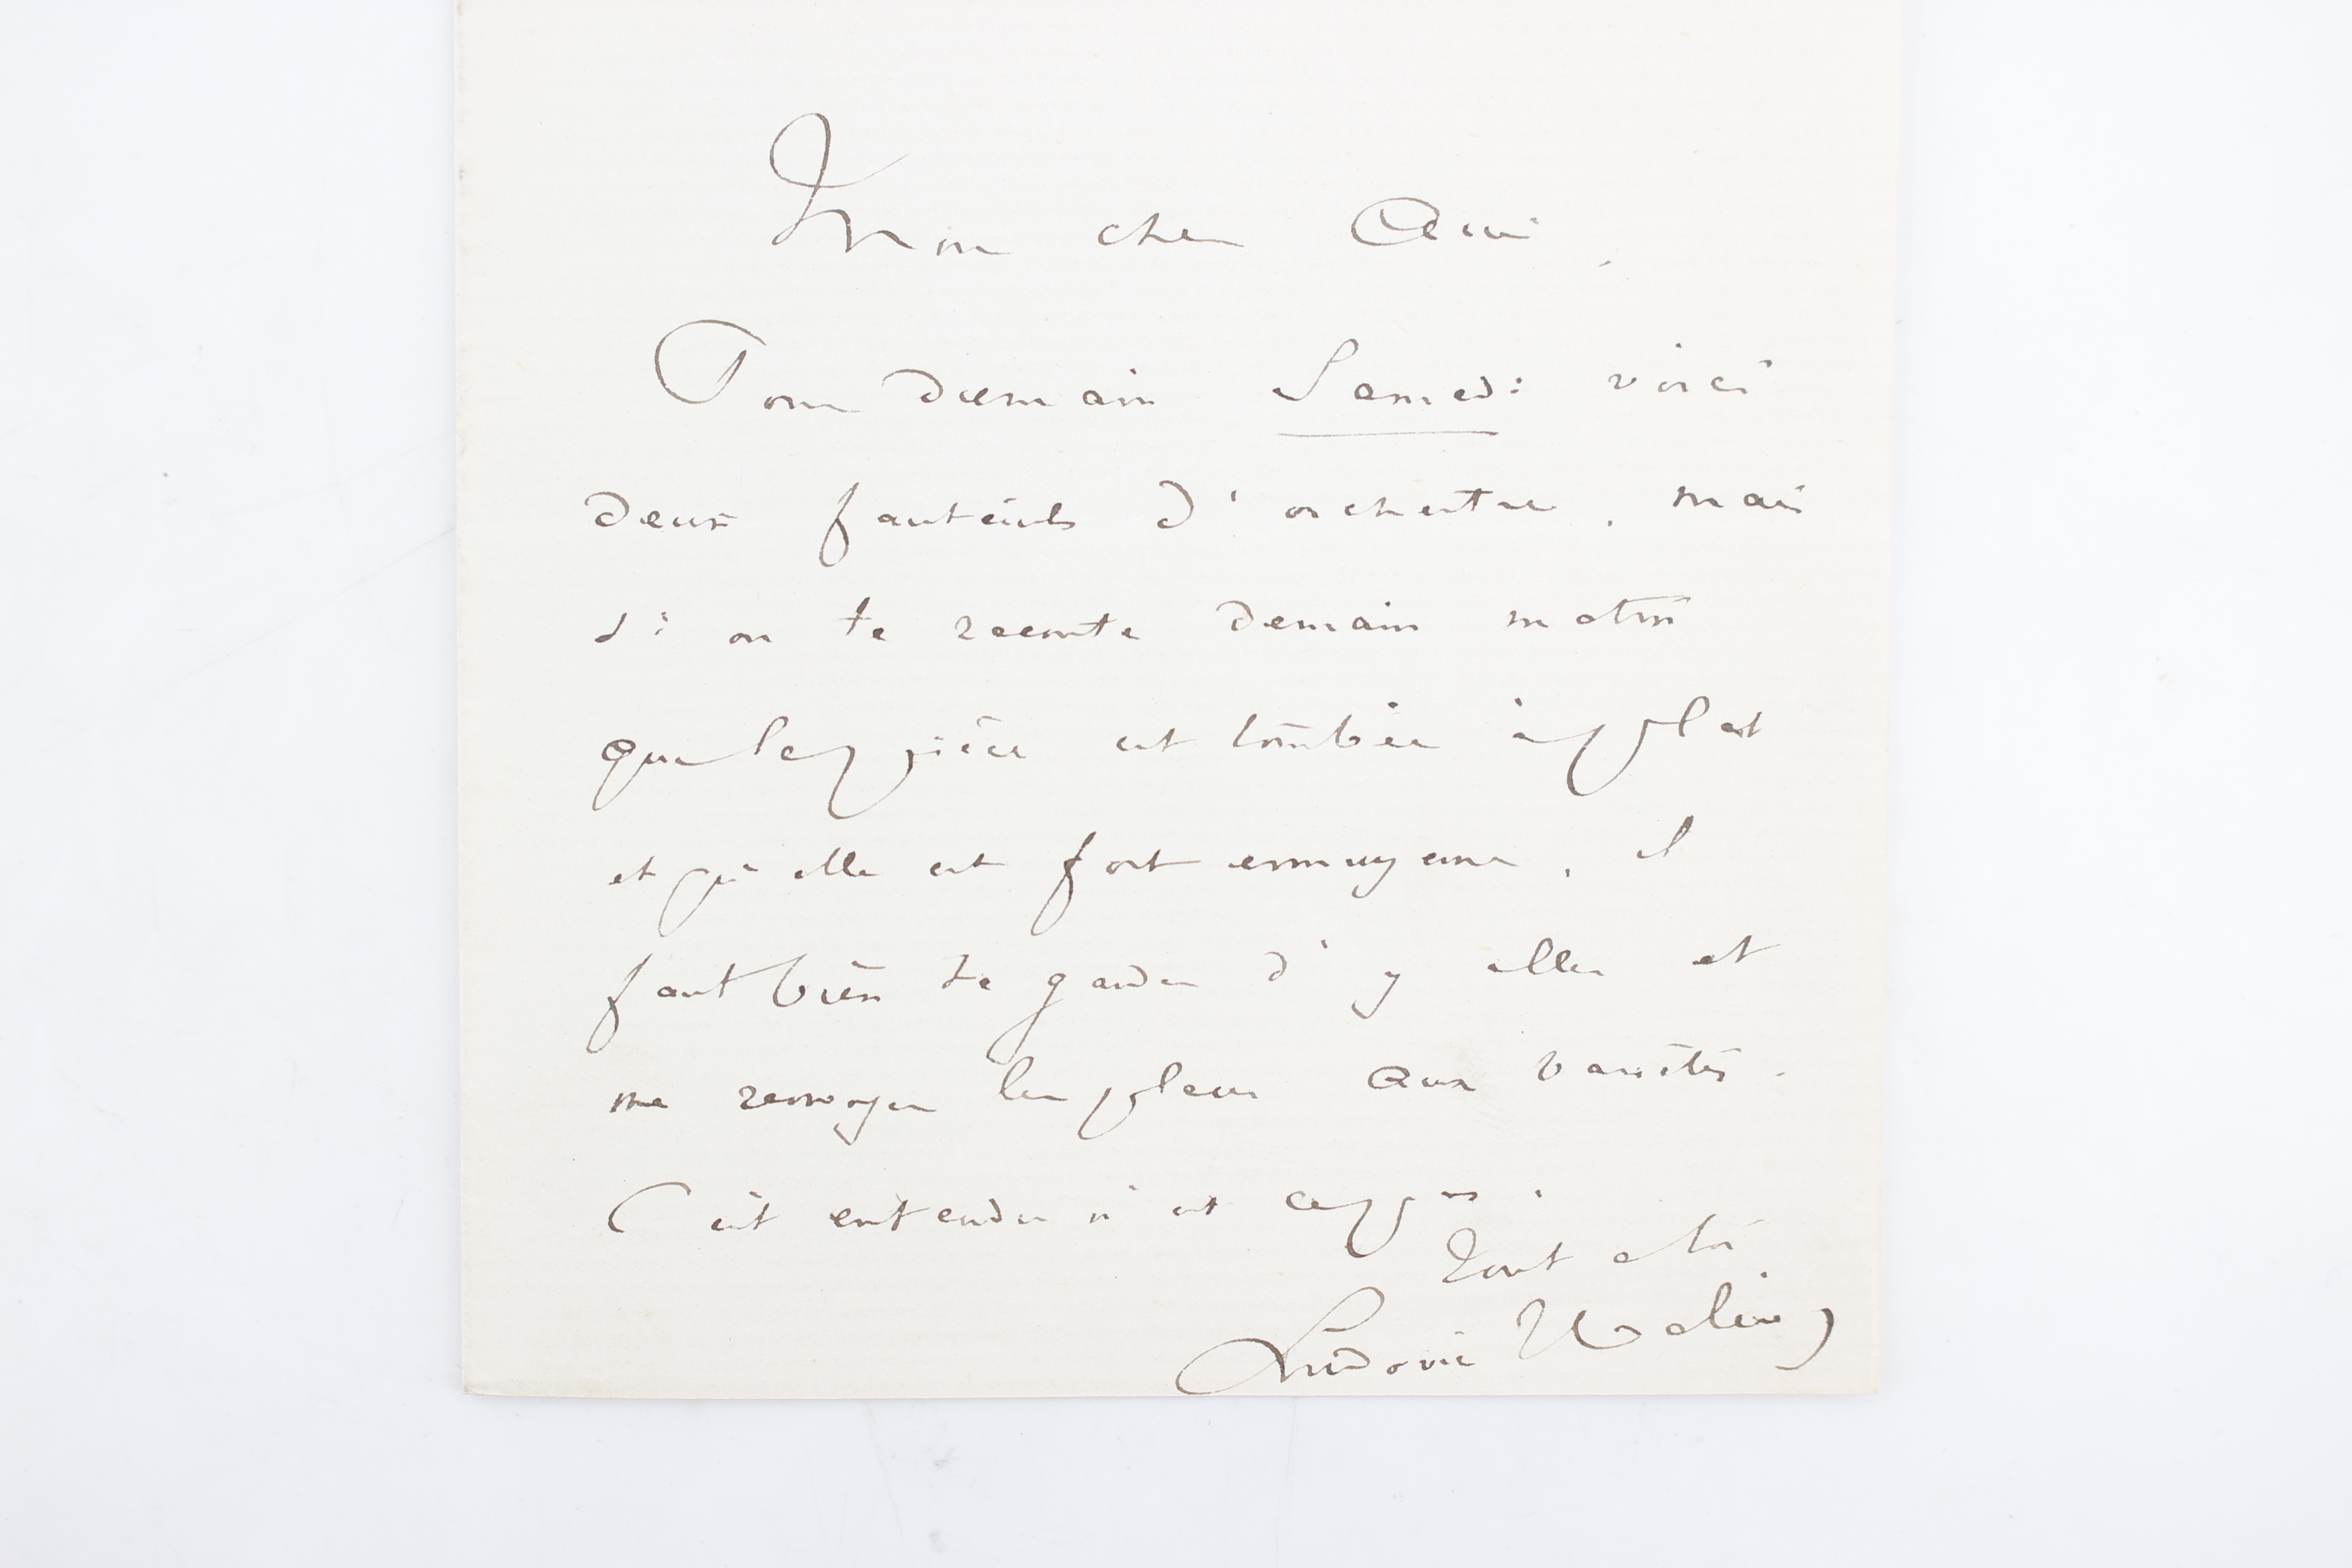 Mon cher Ami,
Pour demain Samedi voici
deux fauteuils d'orchestre, mais
si on te raconte demain matin
que la pièce est tombée à plat
et qu'elle est fort ennuyeuse, il
faut bien te garder d'y aller et
me renvoyer les places aux Variétés.
C'est entendu n'est ce pas.
Tout à toi
Ludovic Halévy